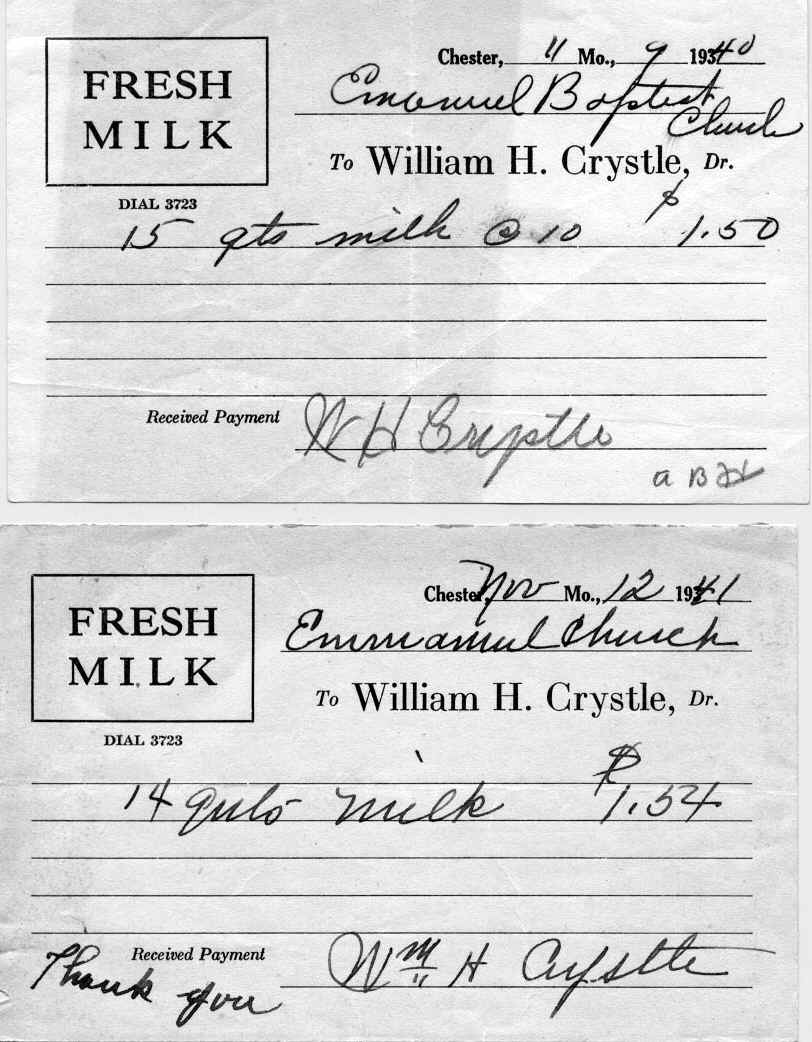 FRESH
MILK
DIAL 3723
Chester, 11 Mo., 9 1940
Emanuel Baptist
Church
To William H. Crystle, Dr.
$
15 qts milk @ 10 1.50
Received Payment W H Crystle
FRESH
MILK
DIAL 3723
Chester, Nov Mo., 12 1941
Emmanuel Church
To William H. Crystle, Dr.
$
14 qts milk 1.54
Received Payment Wm H Crystle
Thank you